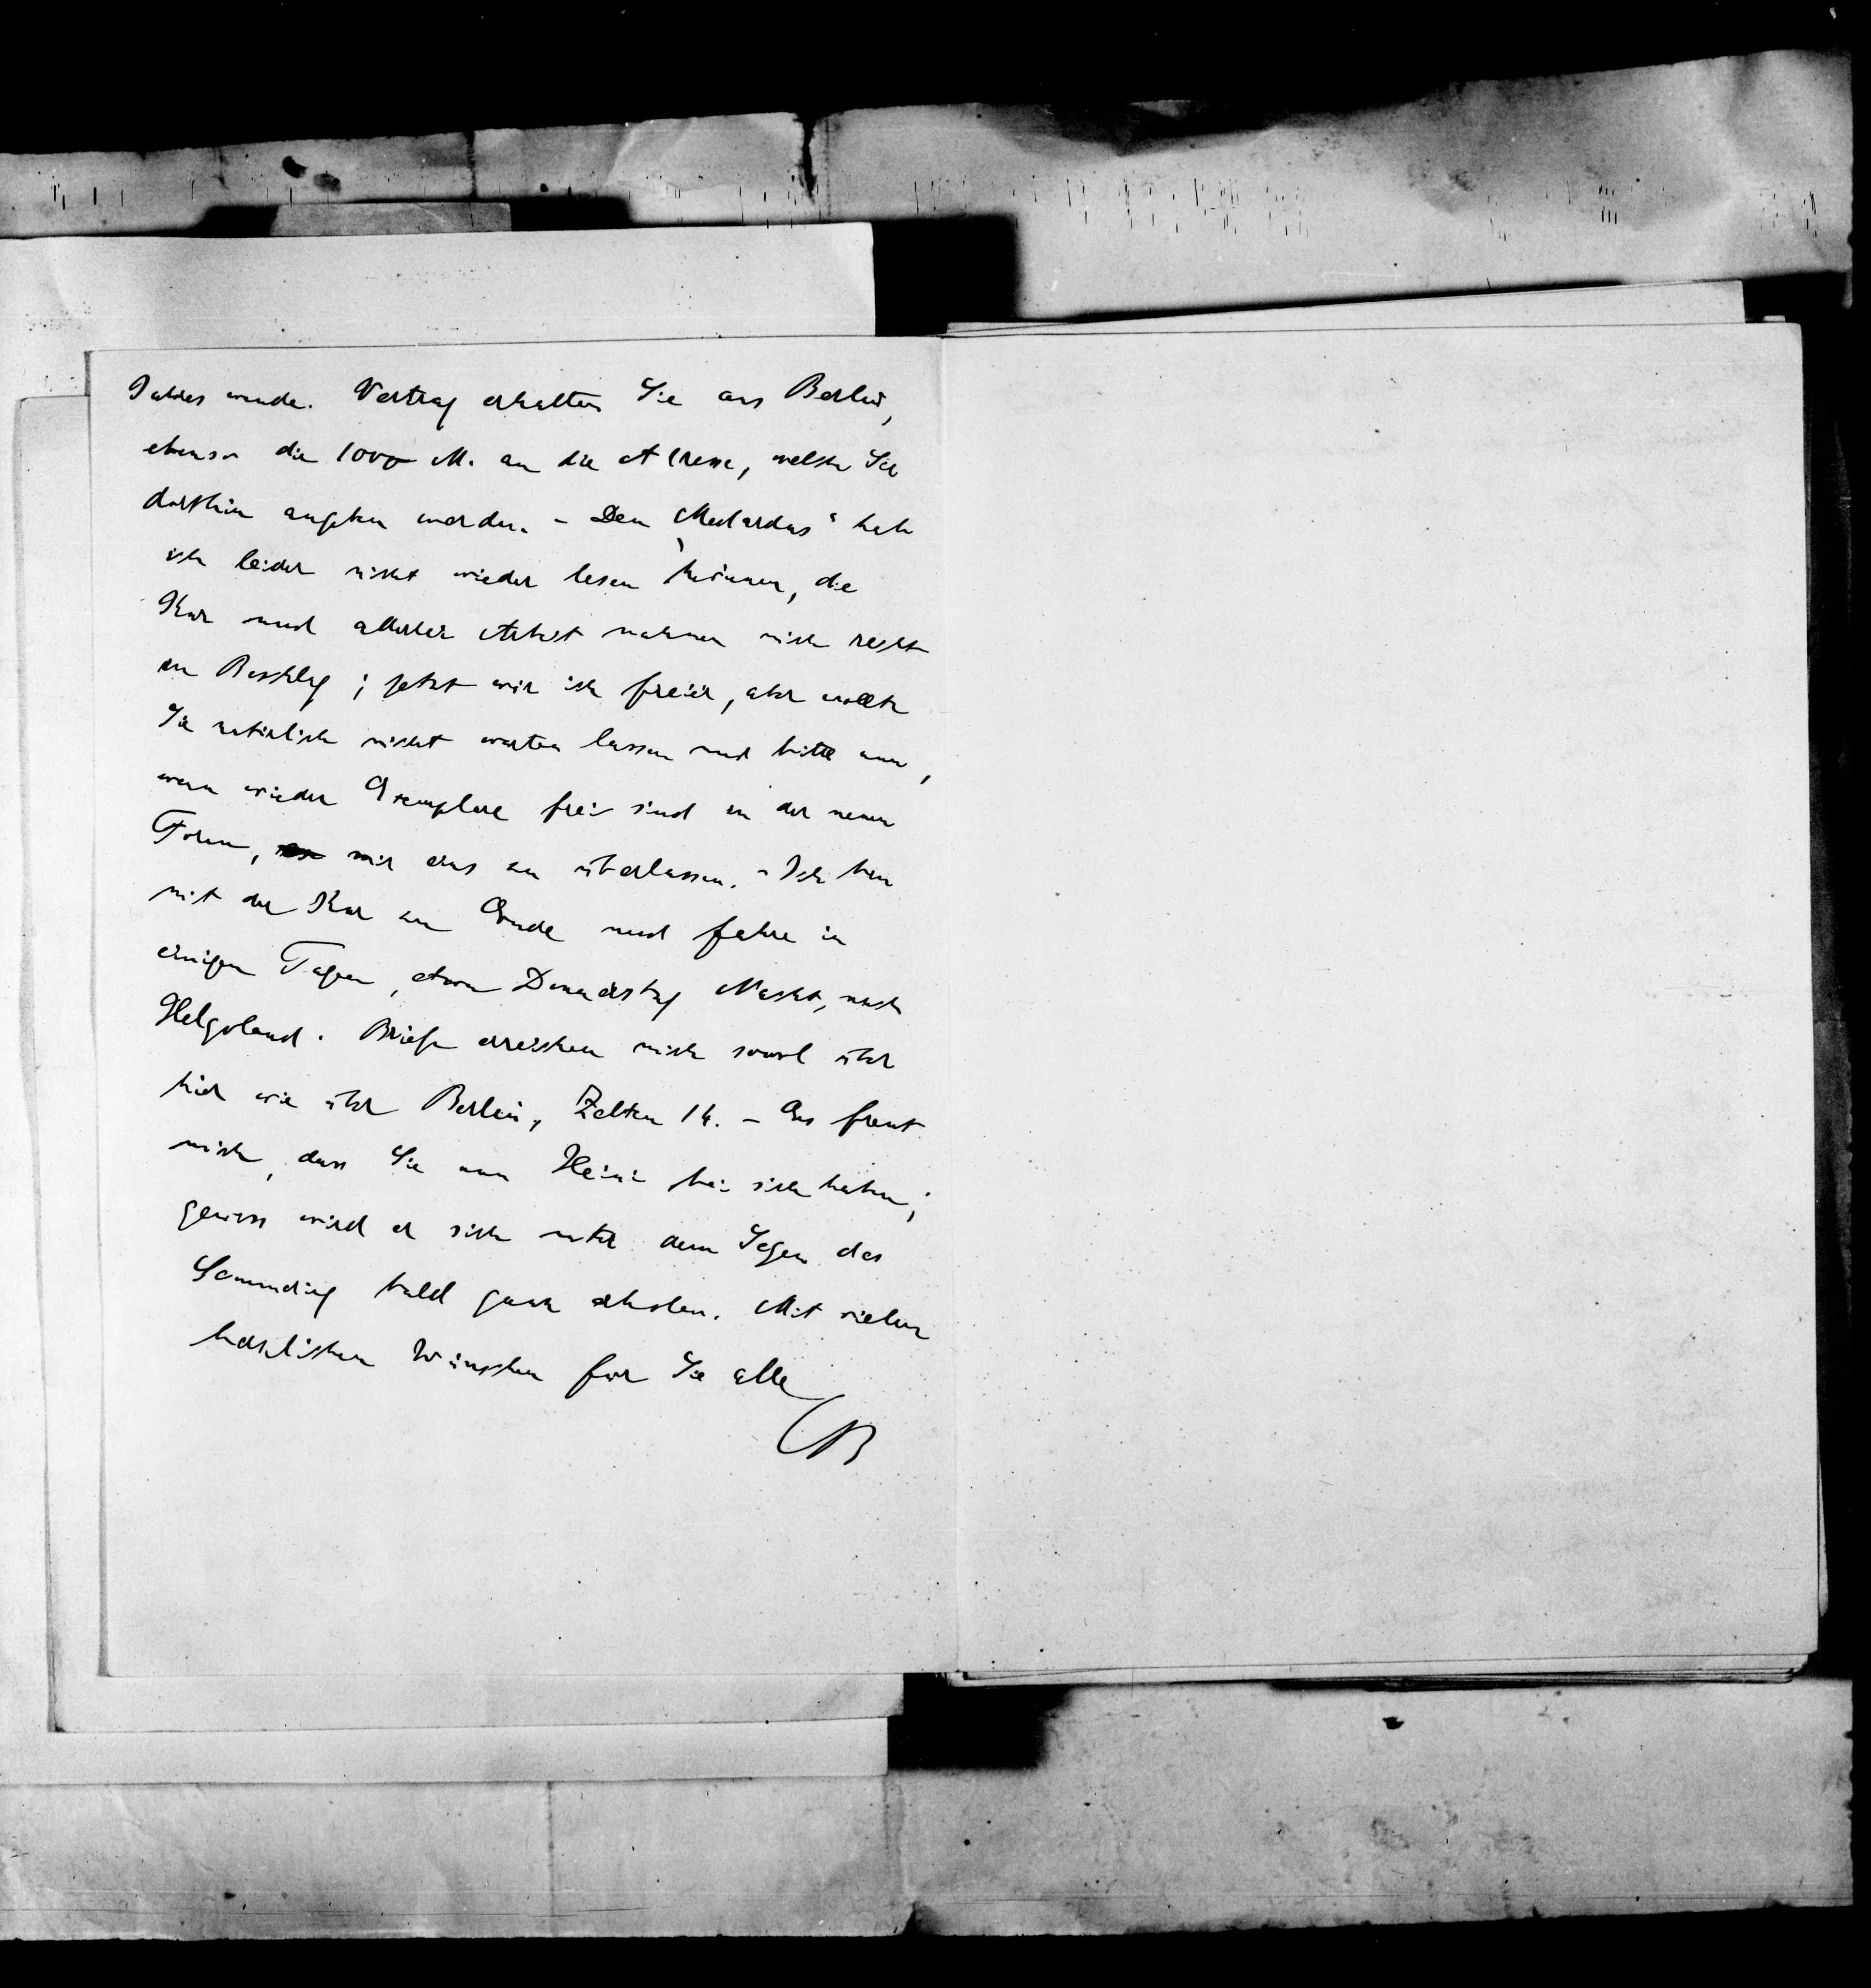 Jahres wende. Vertrag erhalten Sie aus Berlin,
ebenso die 1000 M. an die Adresse, welche Sie
dorthin angeben werden. – Den „Medardus“ habe
ich leider nicht wieder lesen können, die
Kur und allerlei Arbeit nahmen mich recht
in Beschlag; jetzt wär ich freier, aber wollte
Sie natürlich nicht warten lassen und bitte nun,
wenn wieder Exemplare frei sind in der neuen
Form, mir eins zu überlassen. – Ich bin
mit der Kur zu Ende und fahre in
einigen Tagen, etwa Donnerstag Nacht, nach
Helgoland. Briefe erreichen mich sowol über
hier wie über Berlin, Zelten 14. – Es freut
mich, dass Sie nun Heini bei sich haben;
gewiss wird er sich unter dem Segen des
Semmering bald ganz erholen. Mit vielen
herzlichen Wünschen für Sie alle
OB